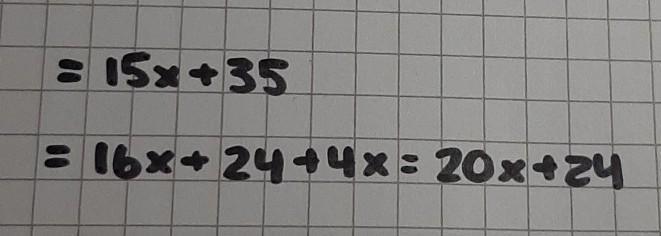 = 15x+35
= 16x+24+4x=20x+24